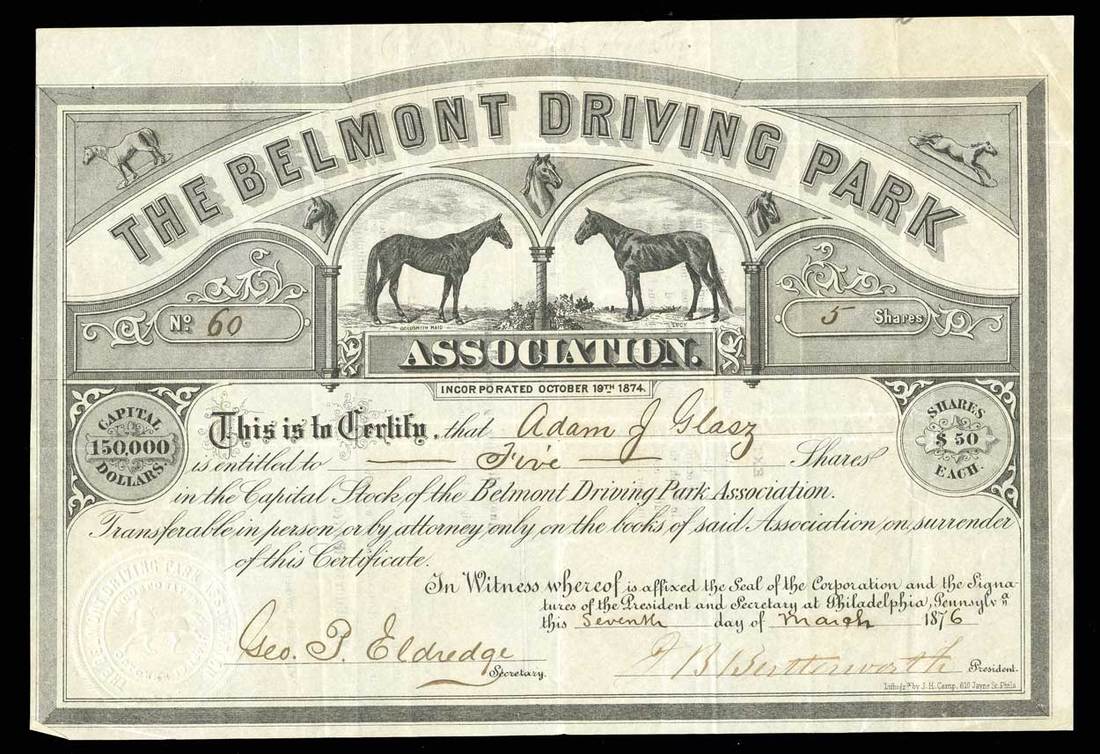 THE BELMONT DRIVING PARK
No. 60
5 Shares
GOLDSMITH MAID
LUCY
ASSOCIATION.
INCORPORATED OCTOBER 19TH 1874.
CAPITAL
150,000
DOLLARS.
SHARES
$50
EACH.
This is to Certify, that Adam J Glasz
is entitled to Five Shares
in the Capital Stock of the Belmont Driving Park Association.
Transferable in person or by attorney only on the books of said Association on, surrender
of this Certificate.
In Witness whereof is affixed the Seal of the Corporation and the Signa-
tures of the President and Secretary at Philadelphia, Pennsylva
this Seventh day of March 1876
THE BELMONT DRIVING PARK
Geo. P. Eldredge
Secretary.
Butterworth
President.
Lithog'd by J. H. Camp, 610 Jayne St. Phila